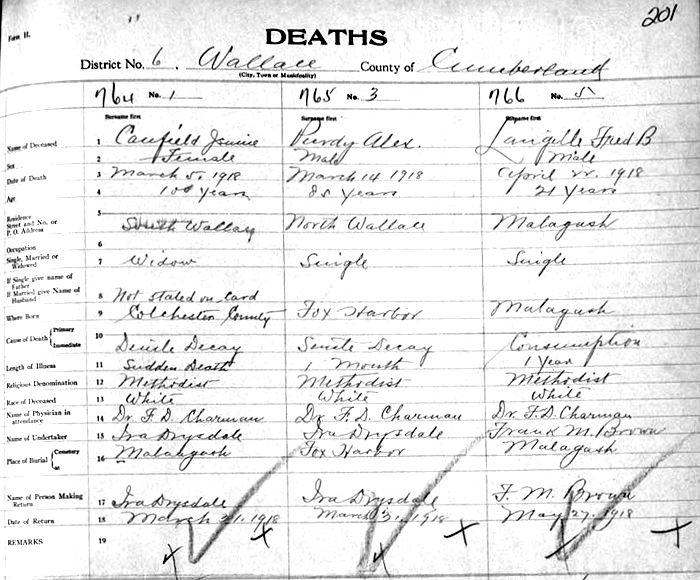 201
Form H.
DEATHS
District No. 6, Wallace County of Cumberland
(City, Town or Municipality)
764 No. 1 765 No. 3 766 No. 5
Surname first Surname first Surname first
Name of Deceased 1 Canfield Purdy Alex. Langille Fred B
Sex 2 Female Male Male
Date of Death 3 March 5, 1918 March 14 1918 April 22, 1918
Age 4 100 Years 85 Years 21 Years
Residence Street and No. or P. O. Address 5 South Wallace North Wallace Malagash
Occupation 6
Single, Married or Widowed 7 Widow Single Single
If Single give name of Father
If Married give Name of Husband 8 Not stated on Card
Where Born 9 Colchester County Fox Harbor Malagash
Cause of Death Primary Immediate 10 Senile Decay Senile Decay Consumption
Length of Illness 11 Sudden Death 1 Month 1 Year
Religious Denomination 12 Methodist Methodist Methodist
Race of Deceased 13 White White White
Name of Physician in attendance 14 Dr. F. D. Charman Dr. F. D. Charman Dr. F. D. Charman
Name of Undertaker 15 Ira Drysdale Ira Drysdale Frank M. Brown
Place of Burial Cemetery at 16 Malangash Fox Harbor Malagash
Name of Person Making Return 17 Ira Drysdale Ira Drysdale F. M. Brown
Date of Return 18 March 31, 1918 March 31, 1918 May 27, 1918
REMARKS 19